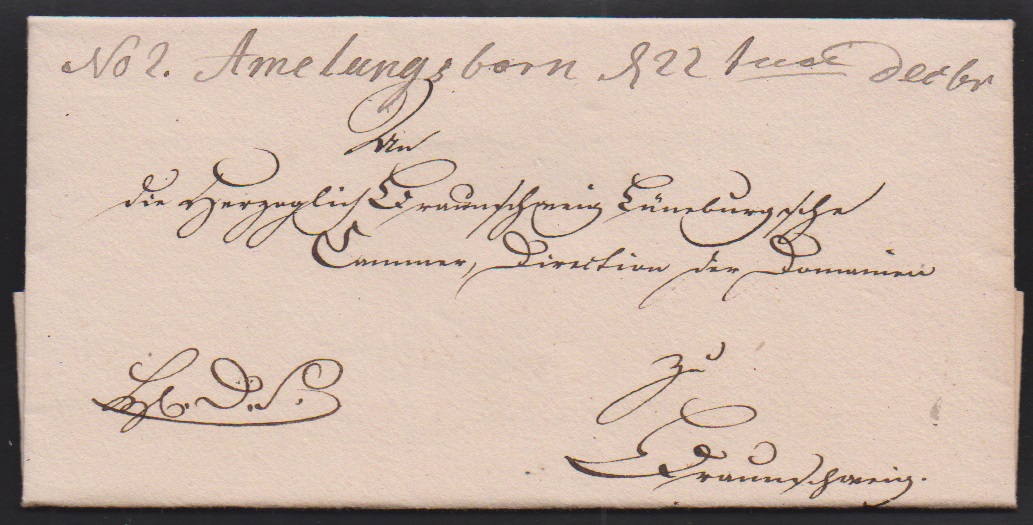 No 2. Amelungsborn d 22 Decbr
An
die Herzoglich Braunschweig Lüneburgsche
Cammer, Direction der Domainen
H. D. S. zu
Braunschweig.